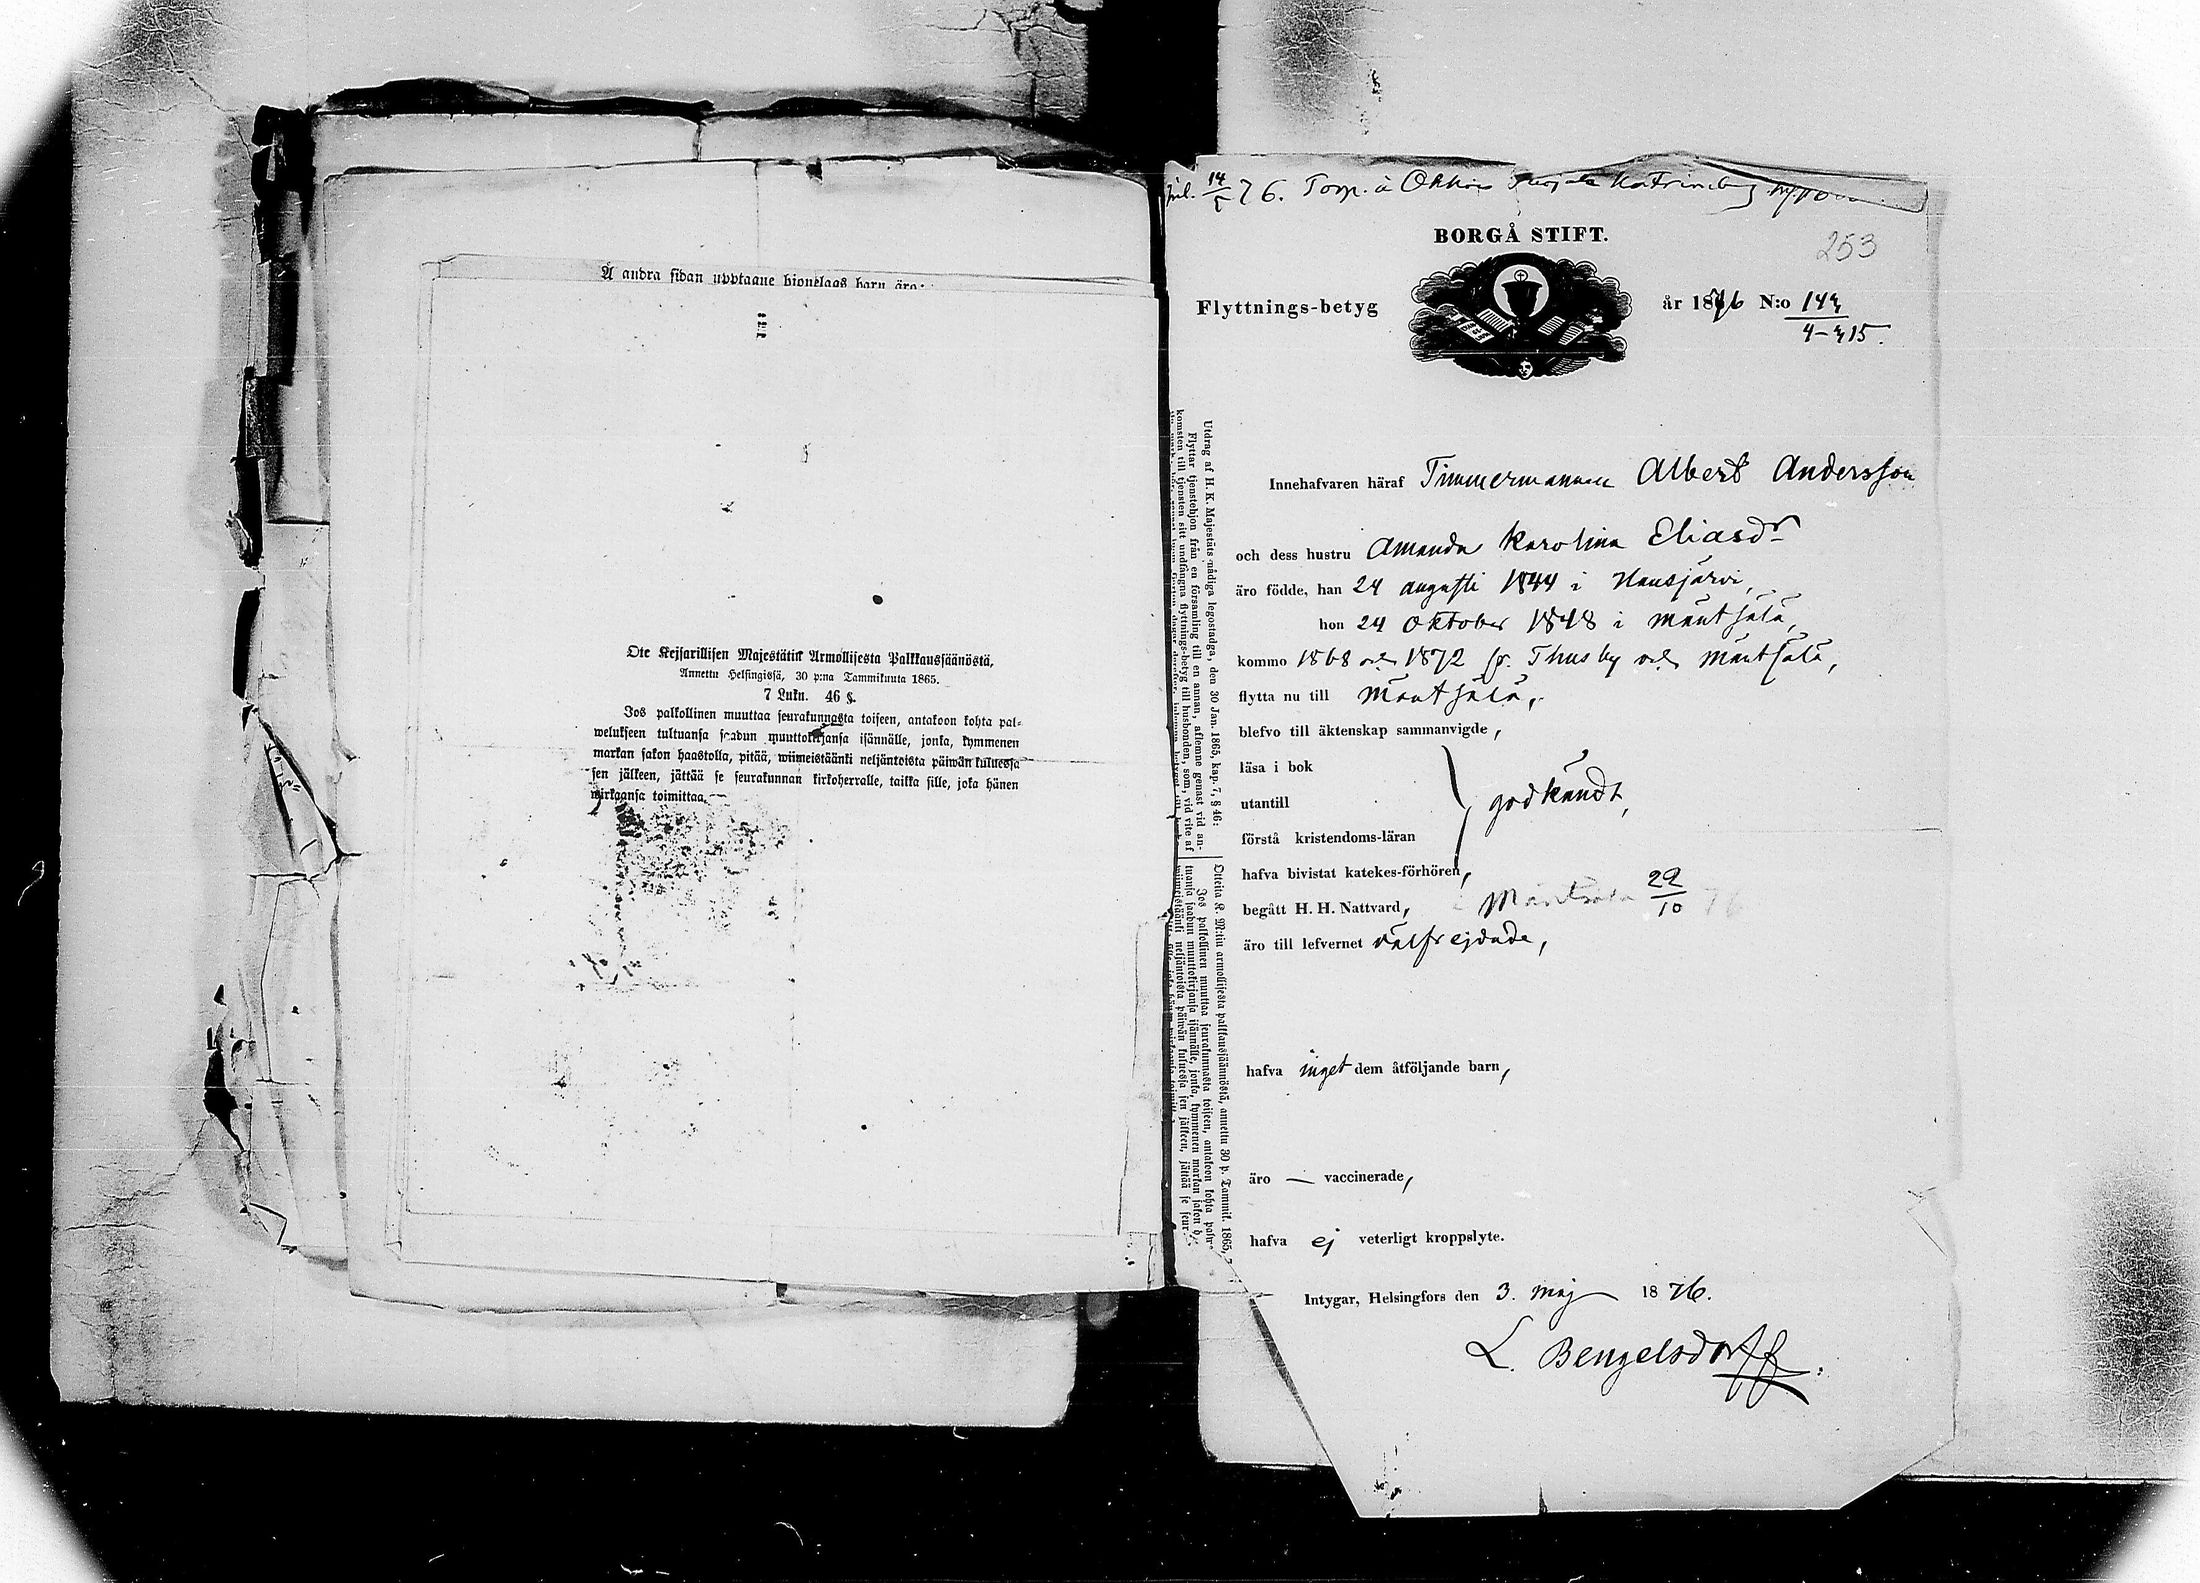 Å andra sidan upptagne hionelags barn äro:
Ote Kejsarillisen Majestätin Armollisesta Palkkaussäänöstä,
Annettu Helsingissä, 30 p:na Tammikuuta 1865.
7 Luku. 46 §.
Jos palkollinen muuttaa seurakunnasta toiseen, antakoon kohta pal-
welukseen tultuansa saadun muuttokirjansa isännälle, jonka, kymmenen
markan sakon haastolla, pitää, wiimeistäänki neljäntoista päiwän kuluessa
sen jälkeen, jättää se seurakunnan kirkoherralle, taikka sille, joka hänen
wirkaansa toimittaa.
14/5 76. Torp. å
BORGÅ STIFT.
253
Flyttnings-betyg
år 1876 N:o 143
4-315.
Utdrag af H. K. Majestäts nådiga legostadga, den 30 Jan. 1865, kap. 7, § 46:
Flyttar tjenstehjon från en församling till en annan, aflemne genast vid an-
komsten till tjensten sitt undfångna flyttnings-betyg till husbonden, som, vid vite af
Otteita K. M:tin armollisesta palkkaussäännöstä, annettu 30 p. Tammik. 1865,
Jos palkollinen muuttaa seurakunnasta toiseen, antakoon kohta palwe-
tuansa saadun muuttokirjansa isännälle, jonka, kymmenen markan sakon
wiimeistäänki neljäntoista päiwän kuluessa sen jälkeen, jättää se seur
Innehafvaren häraf Timmermannen Albert Andersson
och dess hustru Amanda Karolina Eliasdr
äro födde, han 24 augusti 1844 i Hausjärvi,
hon 24 Oktober 1848 i Mäntsälä,
kommo 1868 och 1872 fr. Thusby och Mäntsälä,
flytta nu till Mäntsälä,
blefvo till äktenskap sammanvigde,
läsa i bok
utantill
godkändt,
förstå kristendoms-läran
hafva bivistat katekes-förhören,
begått H. H. Nattvard, i Mäntsälä 22/10 76
äro till lefvernet välfrejdade,
hafva inget dem åtföljande barn,
äro — vaccinerade,
hafva ej veterligt kroppslyte.
Intygar, Helsingfors den 3. maj 1876.
L. Bengelsdorff.